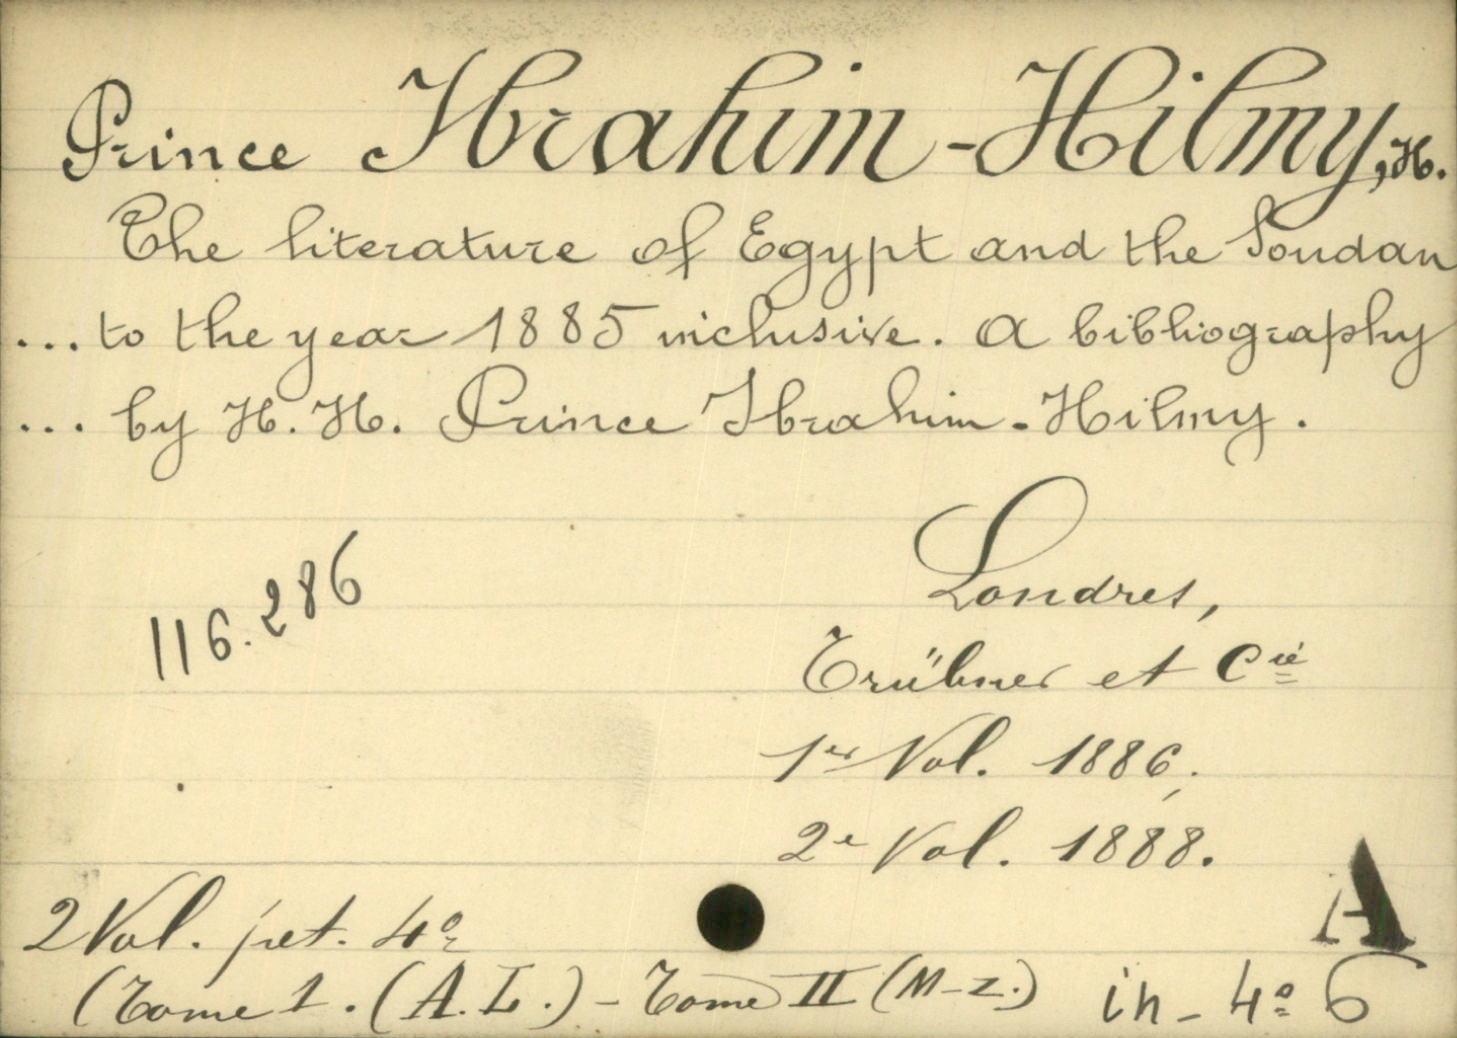 Prince Ibrahim-Hilmy, H.
The literature of Egypt and the Soudan
... to the year 1885 inclusive. A bibliography
... by H. H. Prince Ibrahim-Hilmy.
116.286
Londres,
Trübner et Cie
1er Vol. 1886.
2e Vol. 1888.
2 Vol. pet. 4º
A
(Tome 1. (A.L.) - Tome II (M-Z.)
in-4º 6